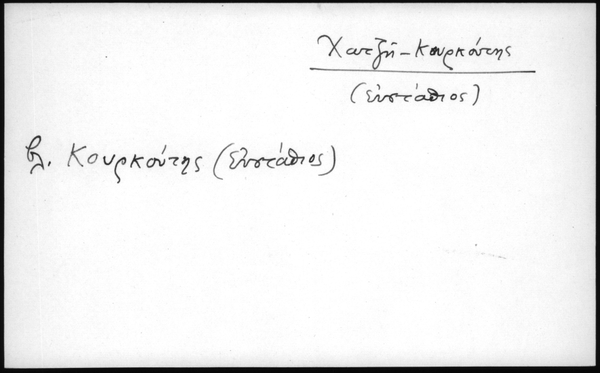 Χατζῆ-Κουρκούτης
(Εὐστάθιος)
βλ. Κουρκούτης (Εὐστάθιος)